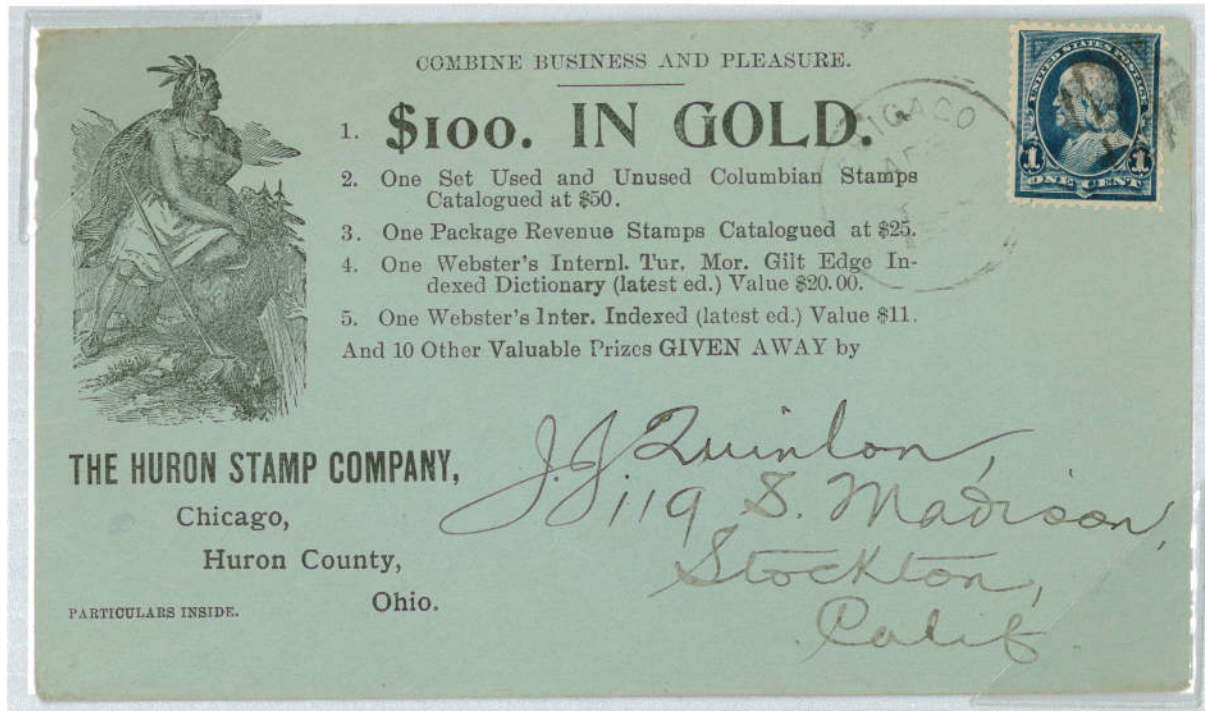 COMBINE BUSINESS AND PLEASURE.
1. $100. IN GOLD.
2. One Set Used and Unused Columbian Stamps
Catalogued at $50.
3. One Package Revenue Stamps Catalogued at $25.
4. One Webster's Internl. Tur. Mor. Gilt Edge In-
dexed Dictionary (latest ed.) Value $20.00.
5. One Webster's Inter. Indexed (latest ed.) Value $11.
And 10 Other Valuable Prizes GIVEN AWAY by
THE HURON STAMP COMPANY,
Chicago,
Huron County,
Ohio.
PARTICULARS INSIDE.
UNITED STATES POSTAGE
1 1
ONE CENT
J. J. Quinlon,
119 S. Madison,
Stockton,
Calif.